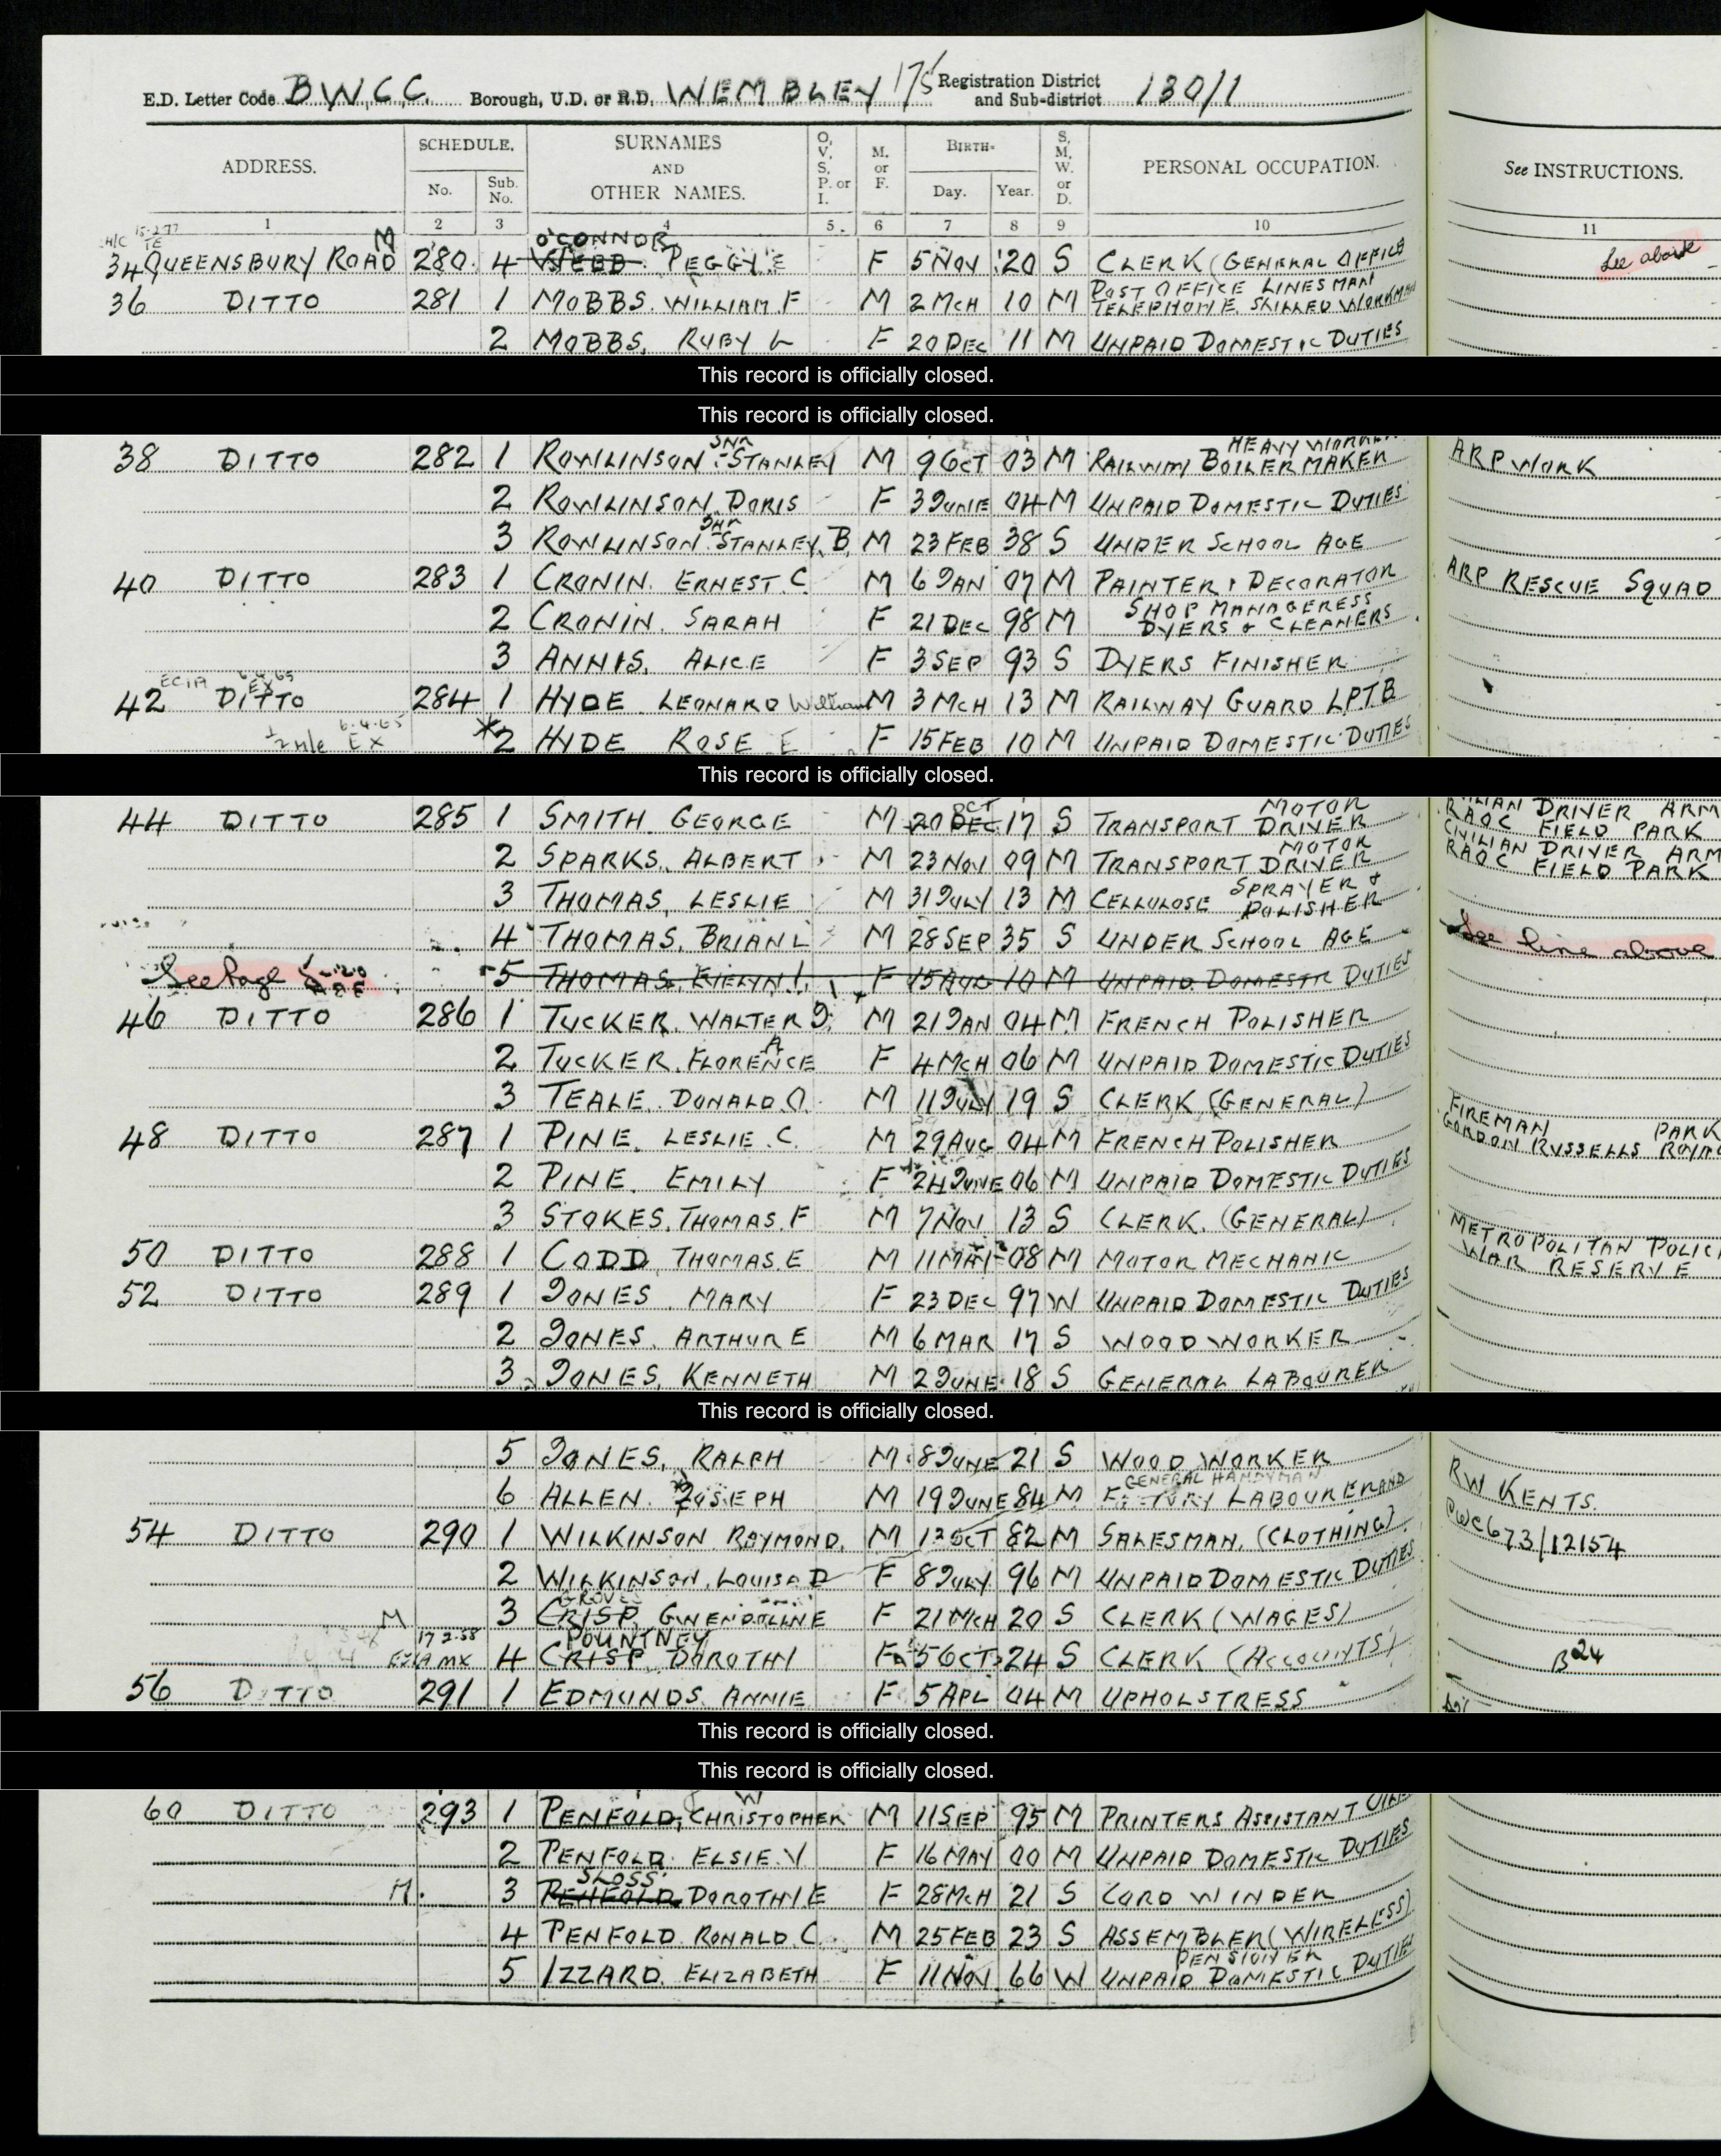 E.D. Letter Code BWGC. Borough, U.D. or R.D. WEMBLEY 175 Registration District and Sub-district 130/1
ADDRESS. SCHEDULE. No. Sub. No. SURNAMES AND OTHER NAMES. O, V, S, P. or I. M. or F. BIRTH- Day. Year. S, M, W. or D. PERSONAL OCCUPATION. See INSTRUCTIONS.
1 2 3 4 5 6 7 8 9 10 11
O'CONNOR
34 QUEENSBURY ROAD M 280 4 WEBB PEGGY E F 5 NOV 20 S CLERK (GENERAL OFFICE See above
36 DITTO 281 1 MOBBS. WILLIAM. F M 2 MCH 10 M POST OFFICE LINESMAN TELEPHONE SKILLED WORKMAN
2 MOBBS, RUBY L F 20 DEC 11 M UNPAID DOMESTIC DUTIES
This record is officially closed.
This record is officially closed.
38 DITTO 282 1 ROWLINSON SNR STANLEY M 9 OCT 03 M RAILWAY BOILER MAKER HEAVY WORKER ARP WORK
2 ROWLINSON. DORIS F 3 JUNE 04 M UNPAID DOMESTIC DUTIES
3 ROWLINSON JNR STANLEY. B. M 23 FEB 38 S UNDER SCHOOL AGE
40 DITTO 283 1 CRONIN. ERNEST. C M 6 JAN 07 M PAINTER & DECORATOR ARP RESCUE SQUAD
2 CRONIN. SARAH F 21 DEC 98 M SHOP MANAGERESS DYERS & CLEANERS
3 ANNIS, ALICE F 3 SEP 93 S DYERS FINISHER
42 DITTO 284 1 HYDE LEONARD William M 3 MCH 13 M RAILWAY GUARD L.P.T.B
6.4.65 EX 2 HYDE ROSE E F 15 FEB 10 M UNPAID DOMESTIC DUTIES
This record is officially closed.
44 DITTO 285 1 SMITH GEORGE M 20 DEC OCT 17 S TRANSPORT MOTOR DRIVER DRIVER ARM RAOC FIELD PARK
2 SPARKS, ALBERT M 23 NOV 09 M TRANSPORT MOTOR DRIVER CIVILIAN DRIVER ARM RAOC FIELD PARK
3 THOMAS, LESLIE M 31 JULY 13 M CELLULOSE SPRAYER & POLISHER
4 THOMAS. BRIAN L M 28 SEP 35 S UNDER SCHOOL AGE See line above
See Page 5 THOMAS. EVELYN I. F 15 AUG 10 M UNPAID DOMESTIC DUTIES
46 DITTO 286 1 TUCKER. WALTER J. M 21 JAN 04 M FRENCH POLISHER
2 TUCKER. FLORENCE A F 4 MCH 06 M UNPAID DOMESTIC DUTIES
3 TEALE. DONALD. O. M 11 JULY 19 S CLERK (GENERAL)
48 DITTO 287 1 PINE. LESLIE. C. M 29 AUG 04 M FRENCH POLISHER FIREMAN PARK GORDON RUSSELLS
2 PINE. EMILY F 24 JUNE 06 M UNPAID DOMESTIC DUTIES
3 STOKES. THOMAS. F M 7 NOV 13 S CLERK. (GENERAL)
50 DITTO 288 1 CODD THOMAS. E M 11 MAY 08 M MOTOR MECHANIC METROPOLITAN POLICE WAR RESERVE
52 DITTO 289 1 JONES MARY F 23 DEC 97 W UNPAID DOMESTIC DUTIES
2 JONES. ARTHUR E M 6 MAR 17 S WOOD WORKER
3 JONES, KENNETH M 2 JUNE 18 S GENERAL LABOURER
This record is officially closed.
5 JONES, RALPH M 8 JUNE 21 S WOOD WORKER
6 ALLEN. JOSEPH M 19 JUNE 84 M FACTORY LABOURER AND GENERAL HANDYMAN RW KENTS.
54 DITTO 290 1 WILKINSON RAYMOND. M 12 OCT 82 M SALESMAN. (CLOTHING) PWC673/12154
2 WILKINSON. LOUISA D F 8 JULY 96 M UNPAID DOMESTIC DUTIES
M 3 CRISP GWENDOLINE F 21 MCH 20 S CLERK (WAGES)
POUNTNEY
17 2.58 4 CRISP DOROTHY F 5 OCT 24 S CLERK (ACCOUNTS) B24
56 DITTO 291 1 EDMUNDS ANNIE F 5 APL 04 M UPHOLSTRESS
This record is officially closed.
This record is officially closed.
60 DITTO 293 1 PENFOLD, CHRISTOPHER W M 11 SEP 95 M PRINTERS ASSISTANT
2 PENFOLD. ELSIE. V F 16 MAY 00 M UNPAID DOMESTIC DUTIES
SLOSS.
M. 3 PENFOLD DOROTHY E F 28 MCH 21 S CORD WINDER
4 PENFOLD RONALD C. M 25 FEB 23 S ASSEMBLER (WIRELESS)
5 IZZARD. ELIZABETH F 11 NOV 66 W PENSIONER UNPAID DOMESTIC DUTIES